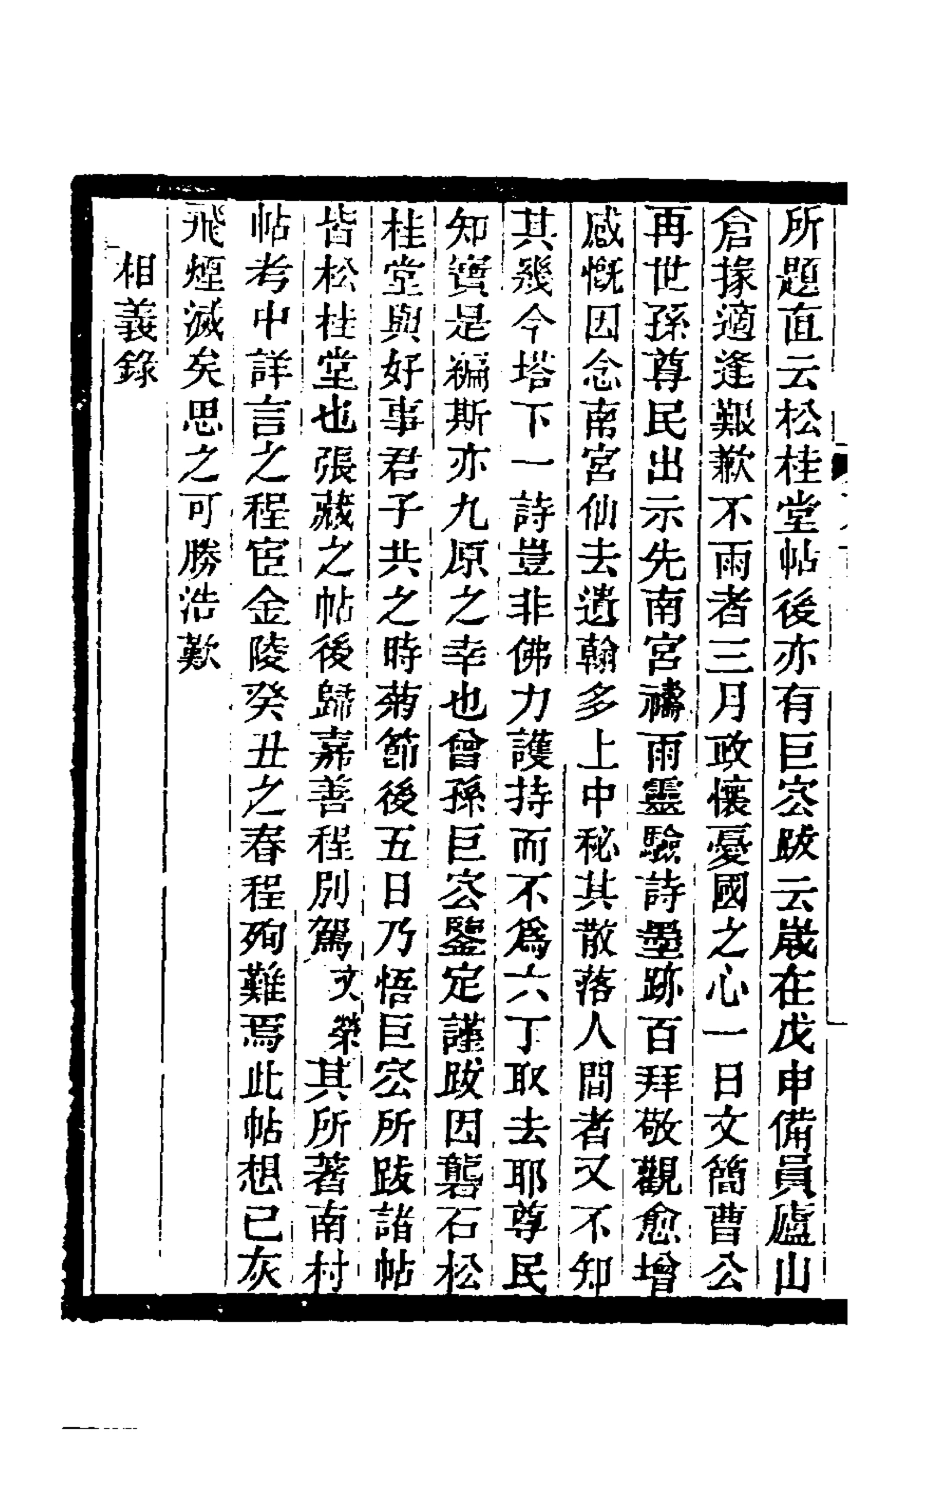 所題直云松桂堂帖後亦有巨容跋云嵗在戊申備員廬山
倉掾適逢艱歉不雨者三月政懷憂國之心一日文簡曹公
再世孫尊民出示先南宮禱雨靈驗詩墨跡百拜敬觀愈增
感慨因念南宮仙去遺翰多上中秘其散落人間者又不知
其幾今塔下一詩豈非佛力護持而不爲六丁取去耶尊民
知寶是編斯亦九原之幸也曾孫巨容鑒定謹跋因礱石松
桂堂與好事君子共之時菊節後五日乃悟巨容所跋諸帖
皆松桂堂也張藏之帖後歸嘉善程別駕文榮其所著南村
帖考中詳言之程宦金陵癸丑之春程殉難焉此帖想已灰
飛煙滅矣思之可勝浩歎
相義錄